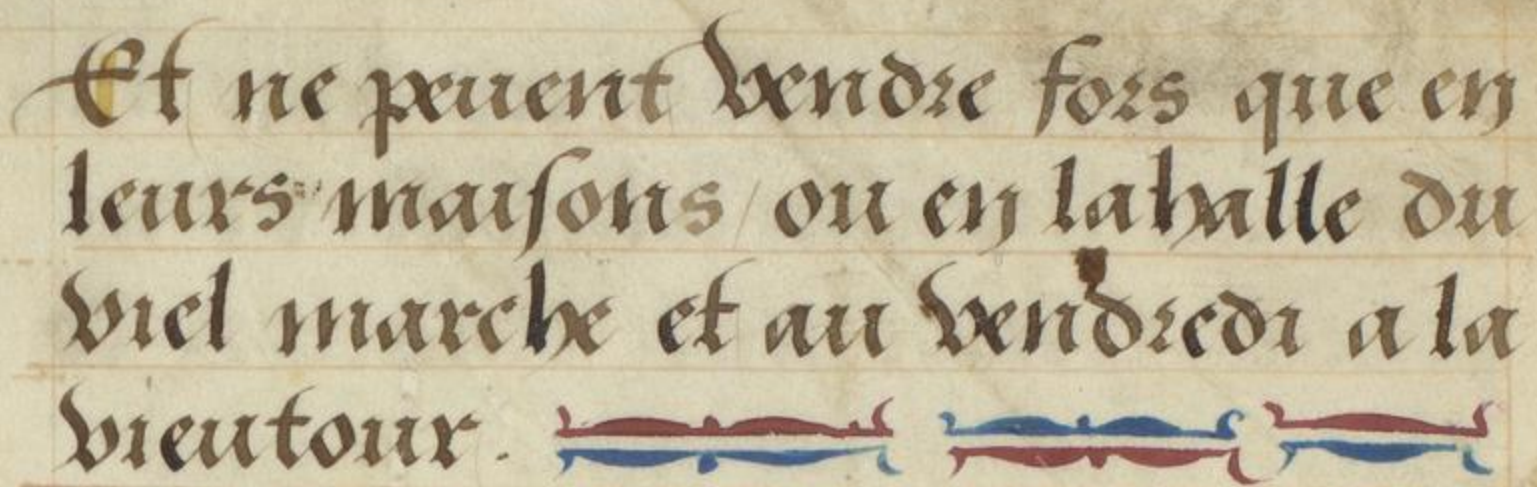 Et ne peuent vendre fors que en
leurs maisons / ou en la halle du
viel marche et au vendredi a la
vieutour.